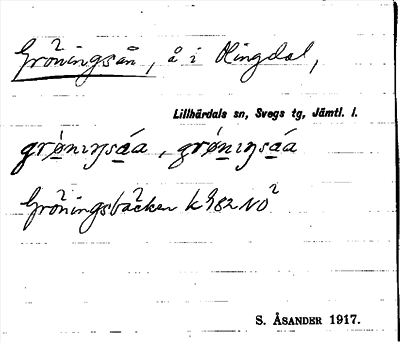 Gröningsån, å i Klingdal,
Lillhärdals sn, Svegs tg, Jämtl. l.
grøniŋsáa, grøniŋsáa
Gröningsbäcken k 982 NO²
S. ÅSANDER 1917.